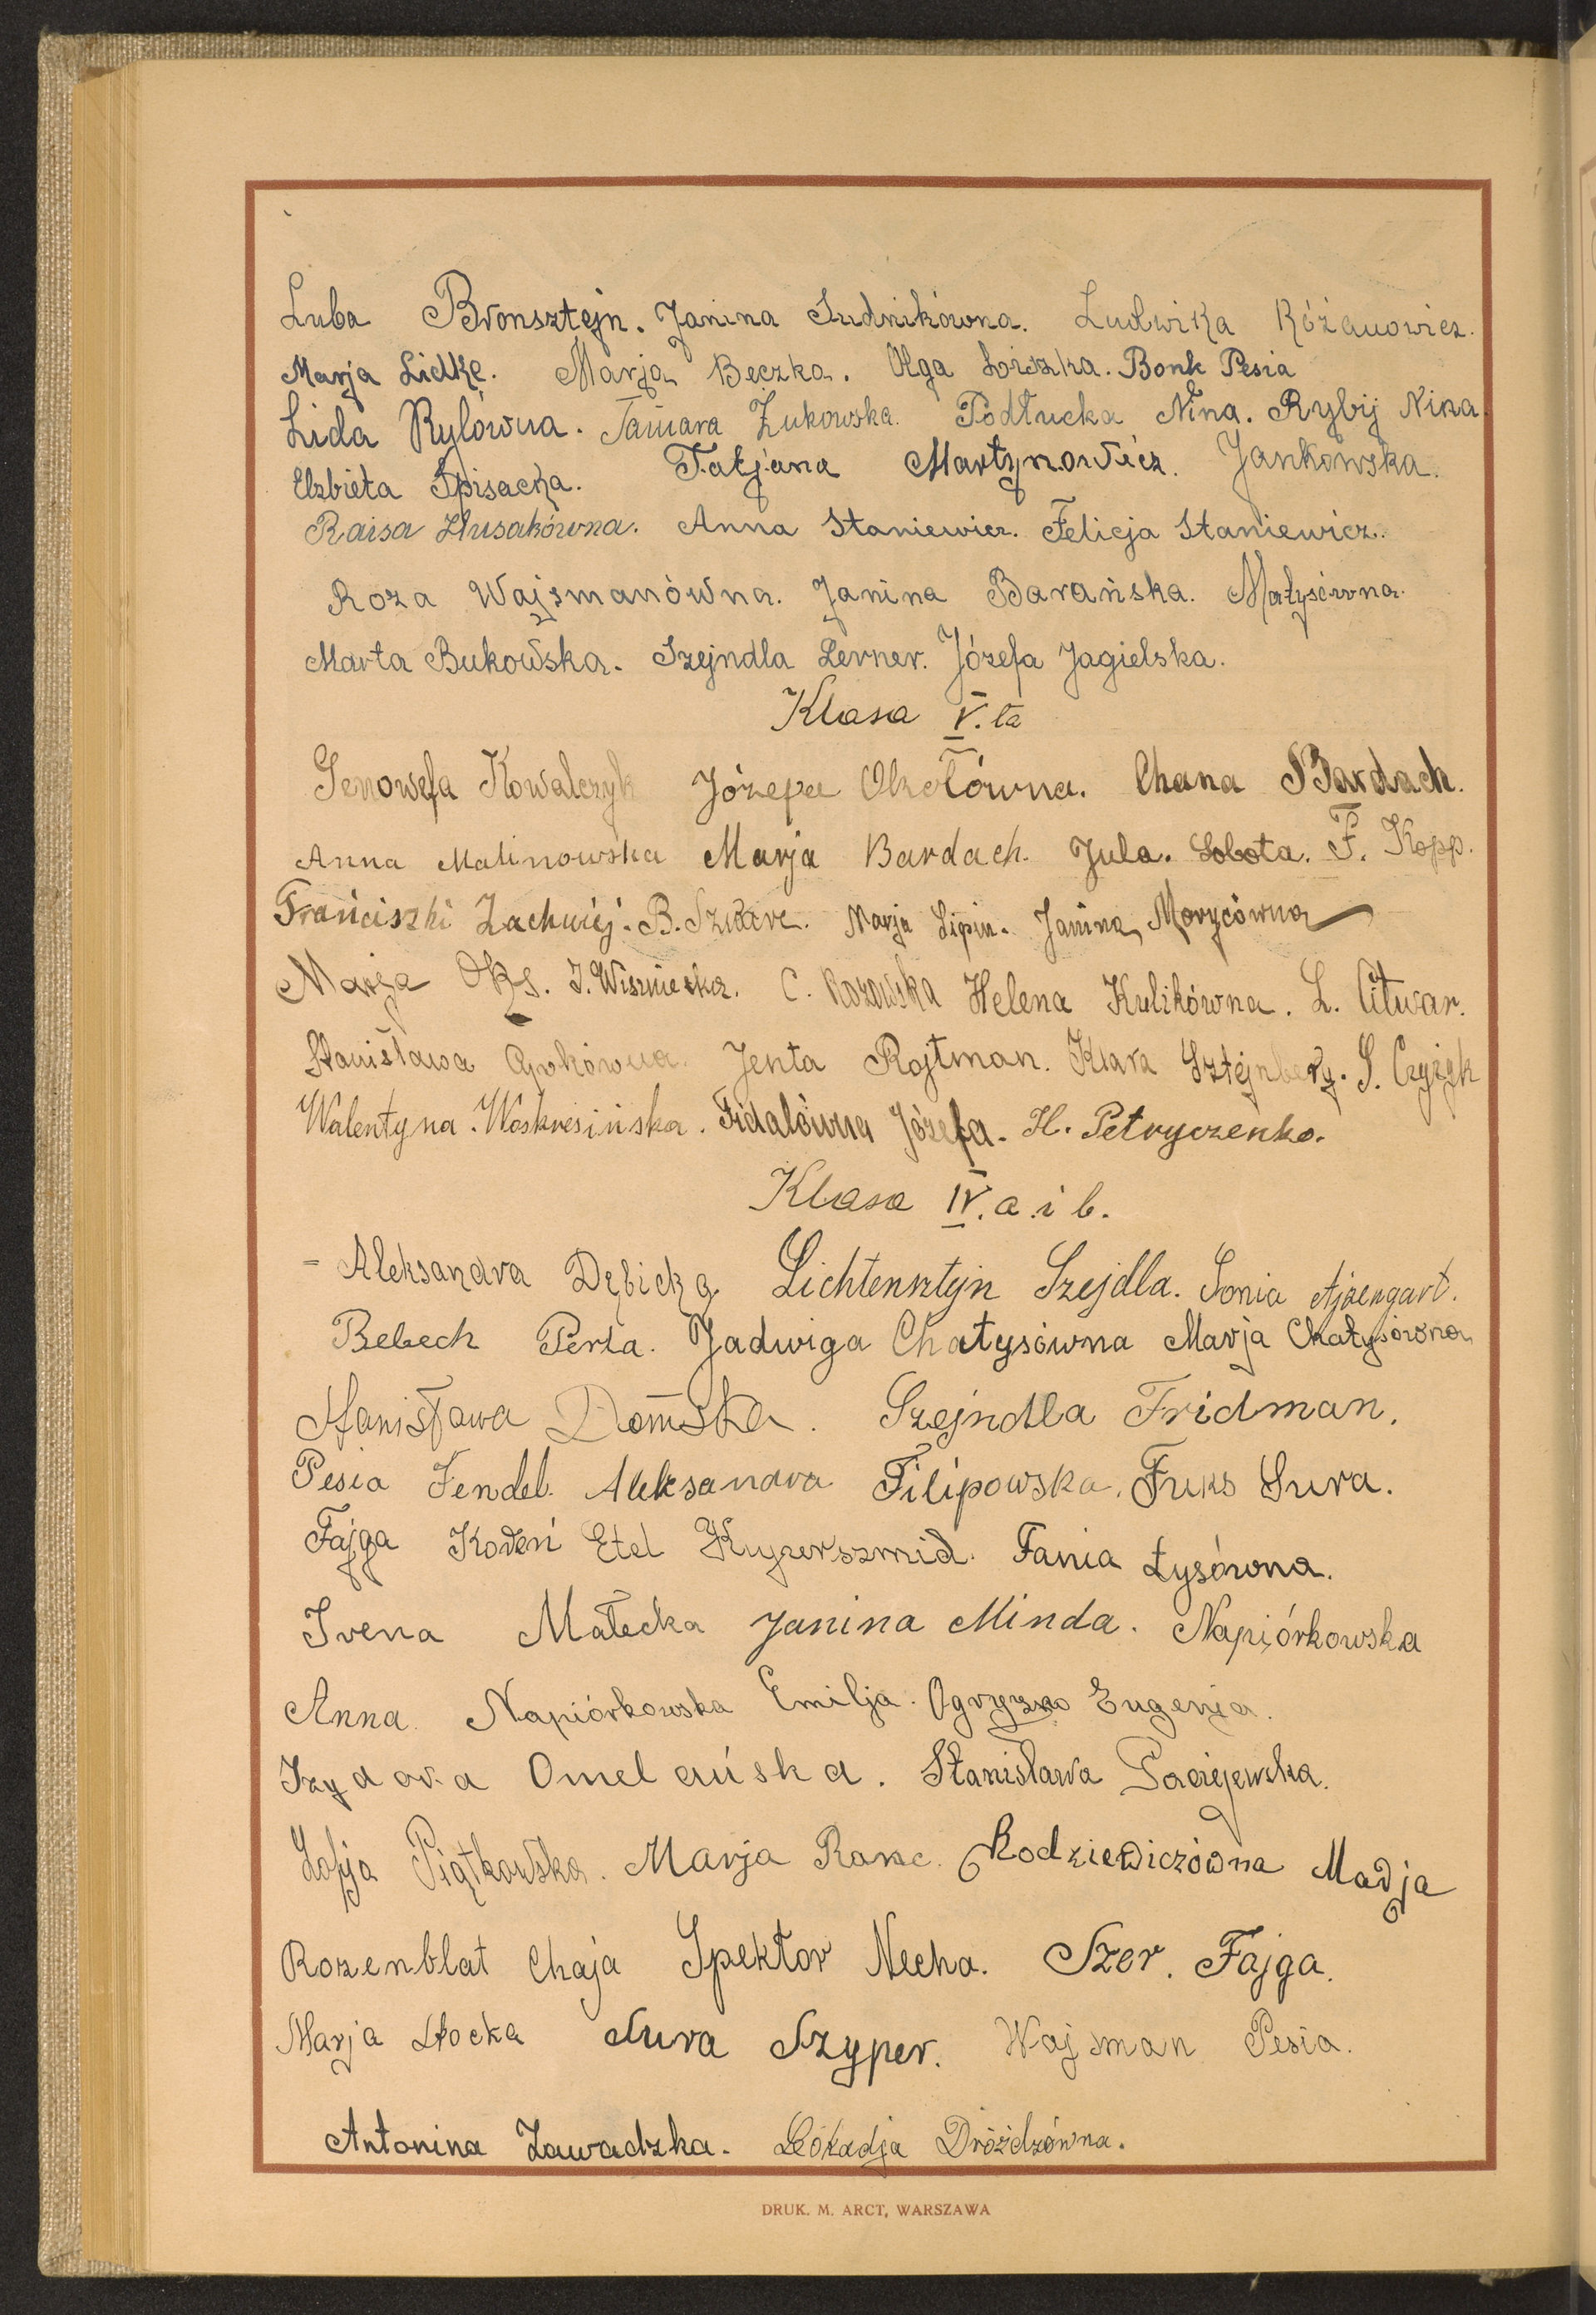 Luba Bronsztejn. Janina Sudnikówna. Ludwika Różanowicz.
Marja Lidke. Marja Beczka. Olga Łoiszka. Bonk Pesia
Lida Rylówna. Tamara Żukowska. Podłucka Nina. Rybij Nina.
Elzbieta Spisacka. Tatjana Martynowicz. Jankowska.
Raisa Husakówna. Anna Staniewicz. Felicja Staniewicz.
Roza Wajsmanówna. Janina Barańska. Małysówna.
Marta Bukowska. Szejndla Lerner. Józefa Jagielska.
Klasa V.ta
Genowefa Kowalczyk Józefa Okołówna. Chana Bardach.
Anna Malinowska Marja Bardach. Jula. Sobota. F. Kopp.
Franciszki Zachwiej. B. Szwarc. Marja Lipin. Janina Morycówna
Marja Oks. J. Wisznieska. C. Rozowska Helena Kulikówna. L. Litwar.
Stanisława Jenta Rojtman. Klara Sztejnberg. S. Czyżyk
Walentyna. Woskresińska. Fidalówna Józefa. H. Petryczenko.
Klasa IV. a i b.
- Aleksandra Dębicka Lichtensztejn Szejdla. Sonia Ajzengart.
Bebech Perla. Jadwiga Chatysówna Marja Chatysówna
Stanisława Domska. Szejndla Fridman.
Pesia Fendel. Aleksandra Filipowska. Fuks Sura.
Fajga Koreń Etel Kuperszmid. Fania Łysówna.
Irena Małecka Janina Minda. Napiórkowska
Anna. Napiórkowska Emilja. Ogryzko Eugenja.
Izydora Omelańska. Stanisława Paciejewska.
Zofja Piątkowska. Marja Ranc. Rodziewiczówna Marja
Rozenblat Chaja Spektor Necha. Szer. Fajga.
Marja Słocka Sura Szyper. Wajsman Pesia.
Antonina Zawadzka. Leokadja Dróżdzówna.
DRUK. M. ARCT, WARSZAWA